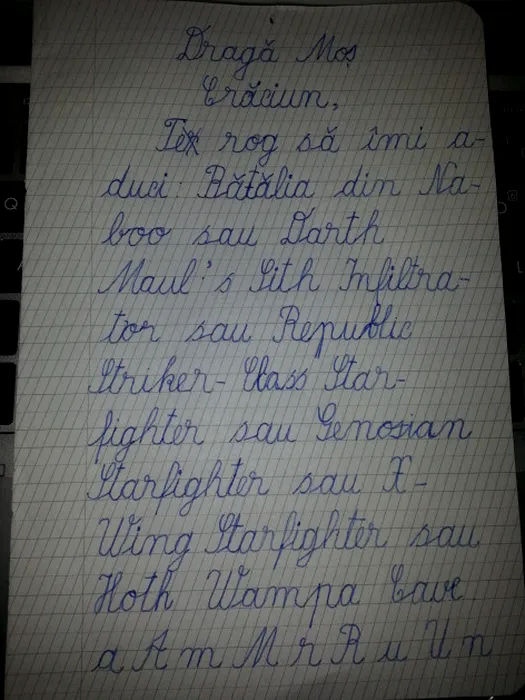 Dragă Moș
Crăciun,
Te rog să îmi a-
duci: Bătălia din Na-
boo sau Darth
Maul's Sith Infiltra-
tor sau Republic
Striker-Class Star-
fighter sau Genosian
Starfighter sau X-
Wing Starfighter sau
Hoth Wampa Cave
a A m M r R u U n